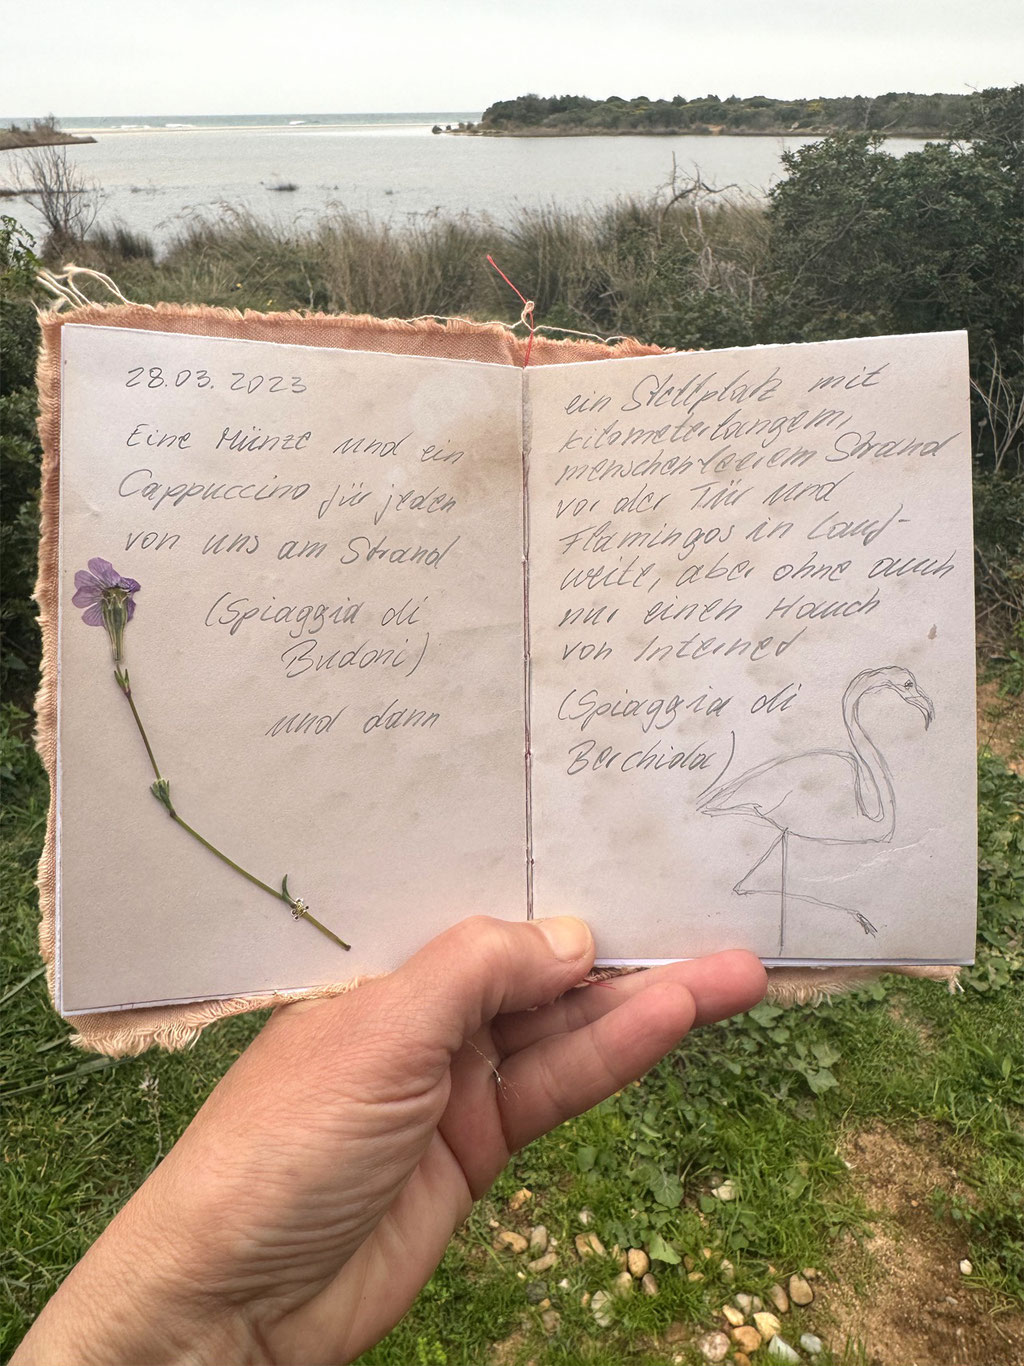 28.03.2023
Eine Münze und ein
Cappuccino für jeden
von uns am Strand
(Spiaggia di
Budoni)
und dann
ein Stellplatz mit
kilometerlangem,
menschenleerem Strand
vor der Tür und
Flamingos in Lauf-
weite, aber ohne auch
nur einen Hauch
von Internet
(Spiaggia di
Berchida)